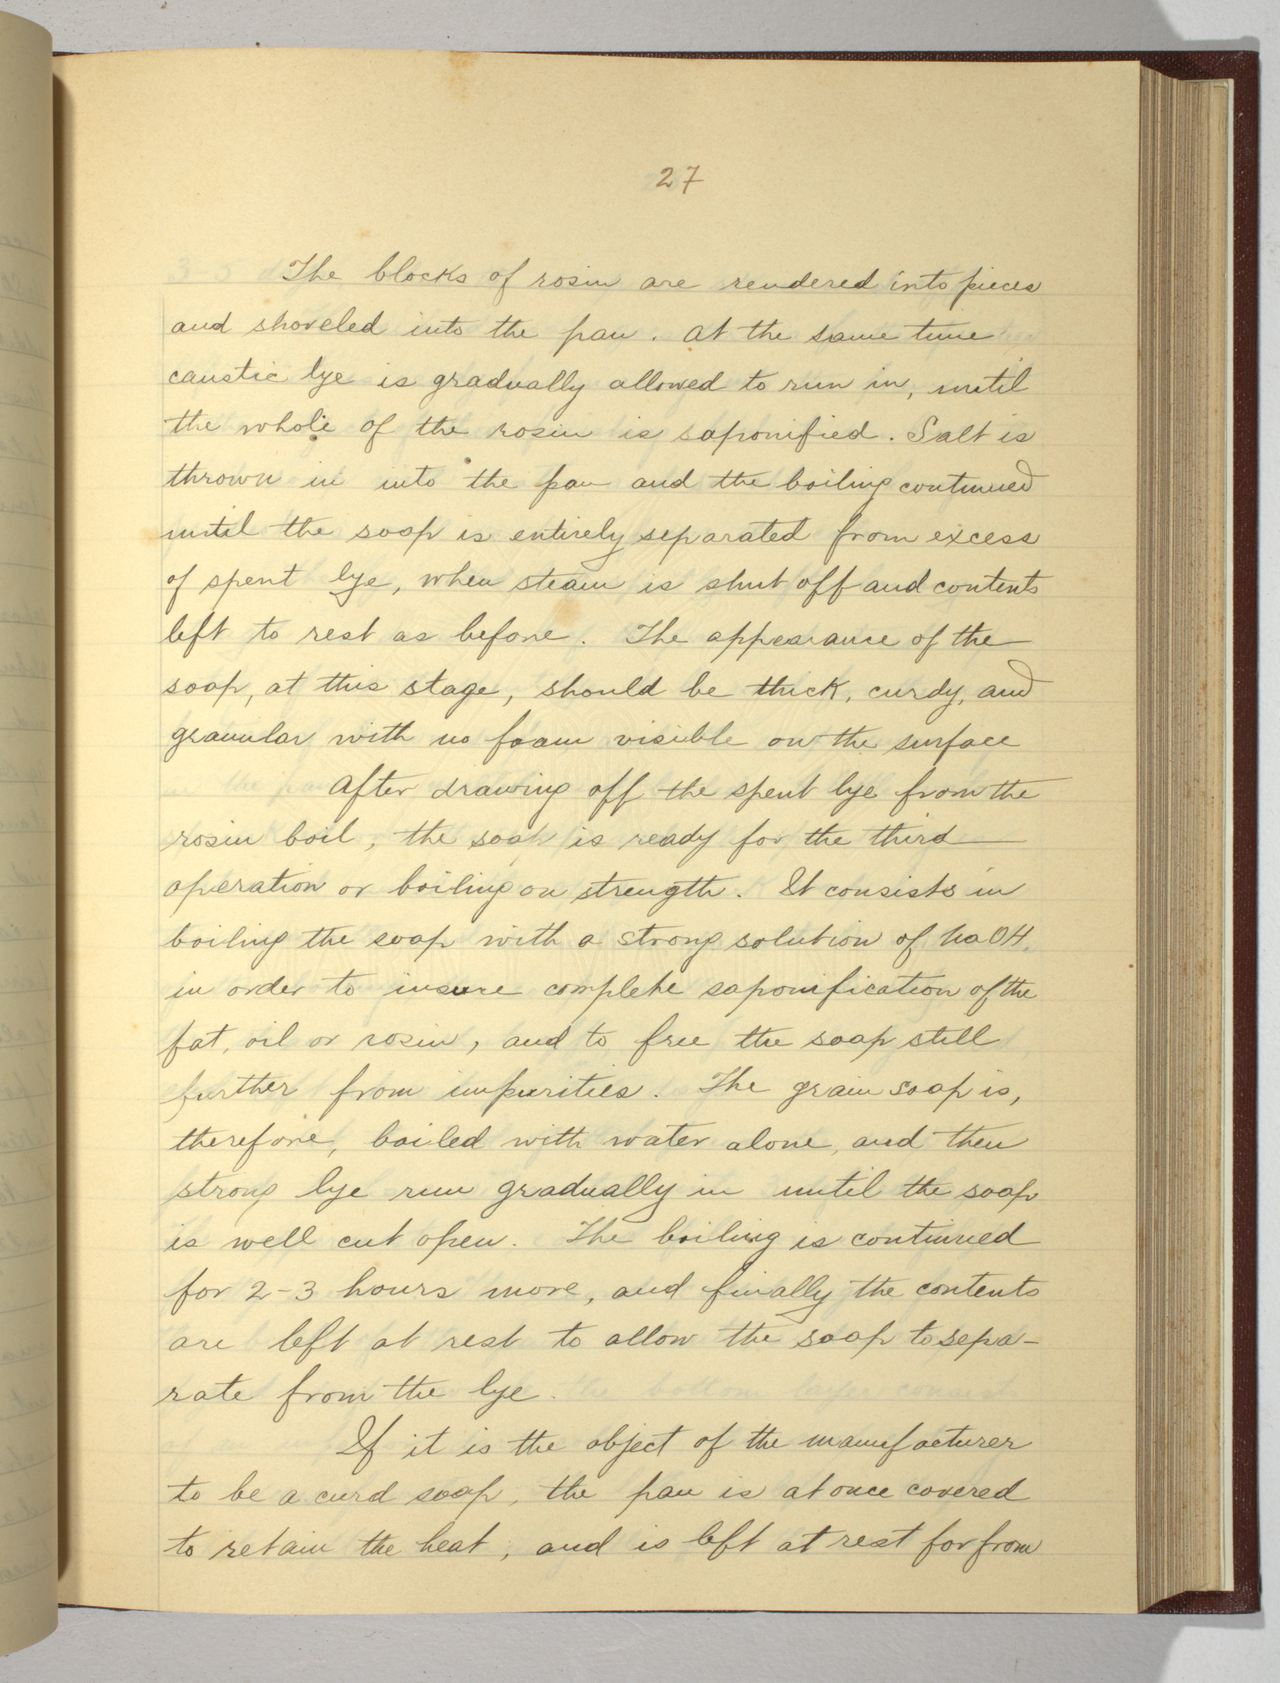 27
The blocks of rosin are rendered into pieces
and shoveled into the pan. At the same time
caustic lye is gradually allowed to run in, until
the whole of the rosin is saponified. Salt is
thrown in into the pan and the boiling continued
until the soap is entirely separated from excess
of spent lye, when steam is shut off and contents
left to rest as before. The appearance of the
soap, at this stage, should be thick, curdy, and
granular with no foam visible on the surface
After drawing off the spent lye from the
rosin boil, the soap is ready for the third
operation or boiling on strength. It consists in
boiling the soap with a strong solution of NaOH,
in order to insure complete saponification of the
fat, oil or rosin, and to free the soap still
further from impurities. The grain soap is,
therefore, boiled with water alone, and then
strong lye run gradually in until the soap
is well cut open. The boiling is continued
for 2-3 hours more, and finally the contents
are left at rest to allow the soap to sepa-
rate from the lye.
If it is the object of the manufacturer
to be a curd soap, the pan is at once covered
to retain the heat, and is left at rest for from